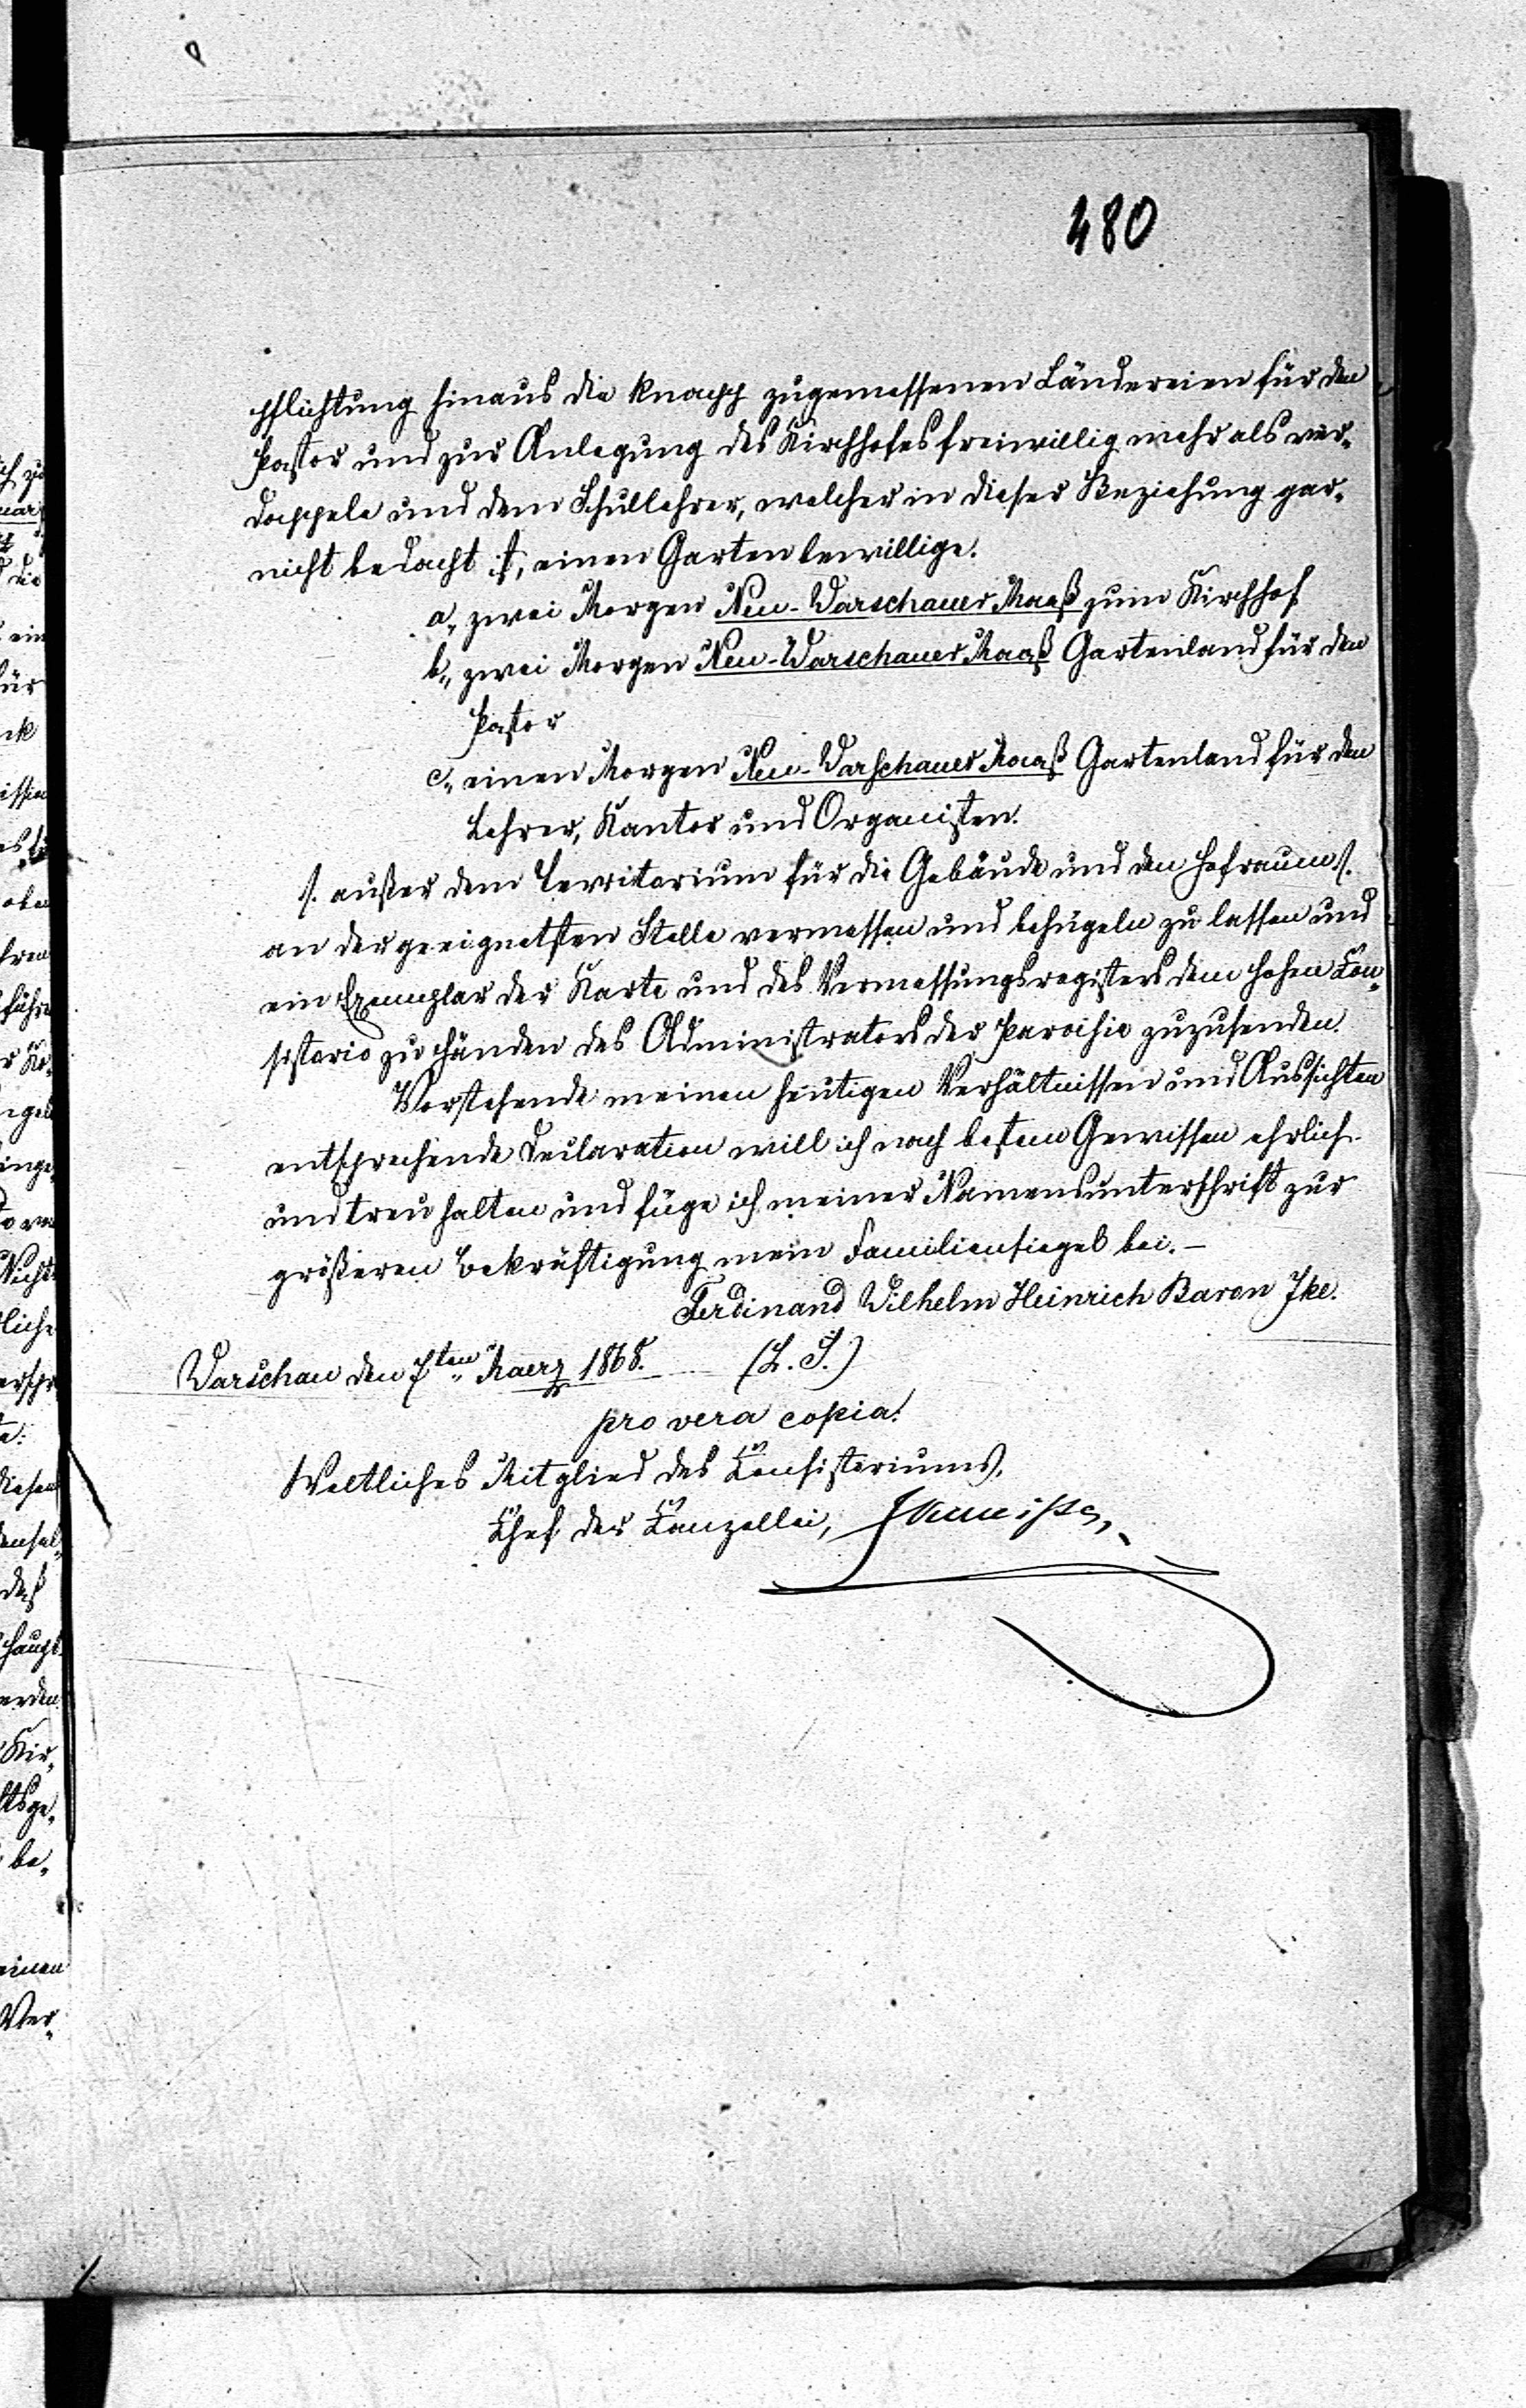 480
pflichtung hinaus die knapp zugemessenen Ländereien für den
Pastor und zur Anlegung des Kirchhofes freiwillig mehr als ver-
doppele und dem Schullehrer, welcher in dieser Beziehung gar-
nicht bedacht ist, einen Garten bewillige.
a., zwei Morgen Neu-Warschauer Maaß zum Kirchhof
b., zwei Morgen Neu-Warschauer Maaß Gartenland für den
Pastor
c., einen Morgen Neu-Warschauer Maaß Gartenland für den
Lehrer, Kantor und Organisten.
/. außer dem Territorium für die Gebäude und den Hofraum /.
an der geeignetsten Stelle vermessen und behügeln zu lassen und
ein Exemplar der Karte und des Vermessungsregisters dem hohen Con-
sistorio zu Händen des Administrators der Parochie zuzusenden.
Vorstehende meinen heutigen Verhältnissen und Aussichten
entsprechende Declaration will ich nach bestem Gewissen ehrlich
und treu halten und füge ich meiner Namensunterschrift zur
größeren Bekräftigung mein Familiensiegel bei. –
Ferdinand Wilhelm Heinrich Baron Ike.
Warschau den 7ten Maerz 1868. (L. S.)
pro vera copia:
Weltliches Mitglied des Consistoriums,
Chef der Canzellei,